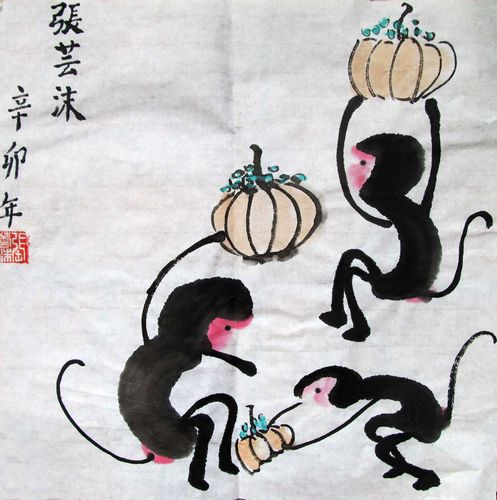 張芸沫
辛卯年